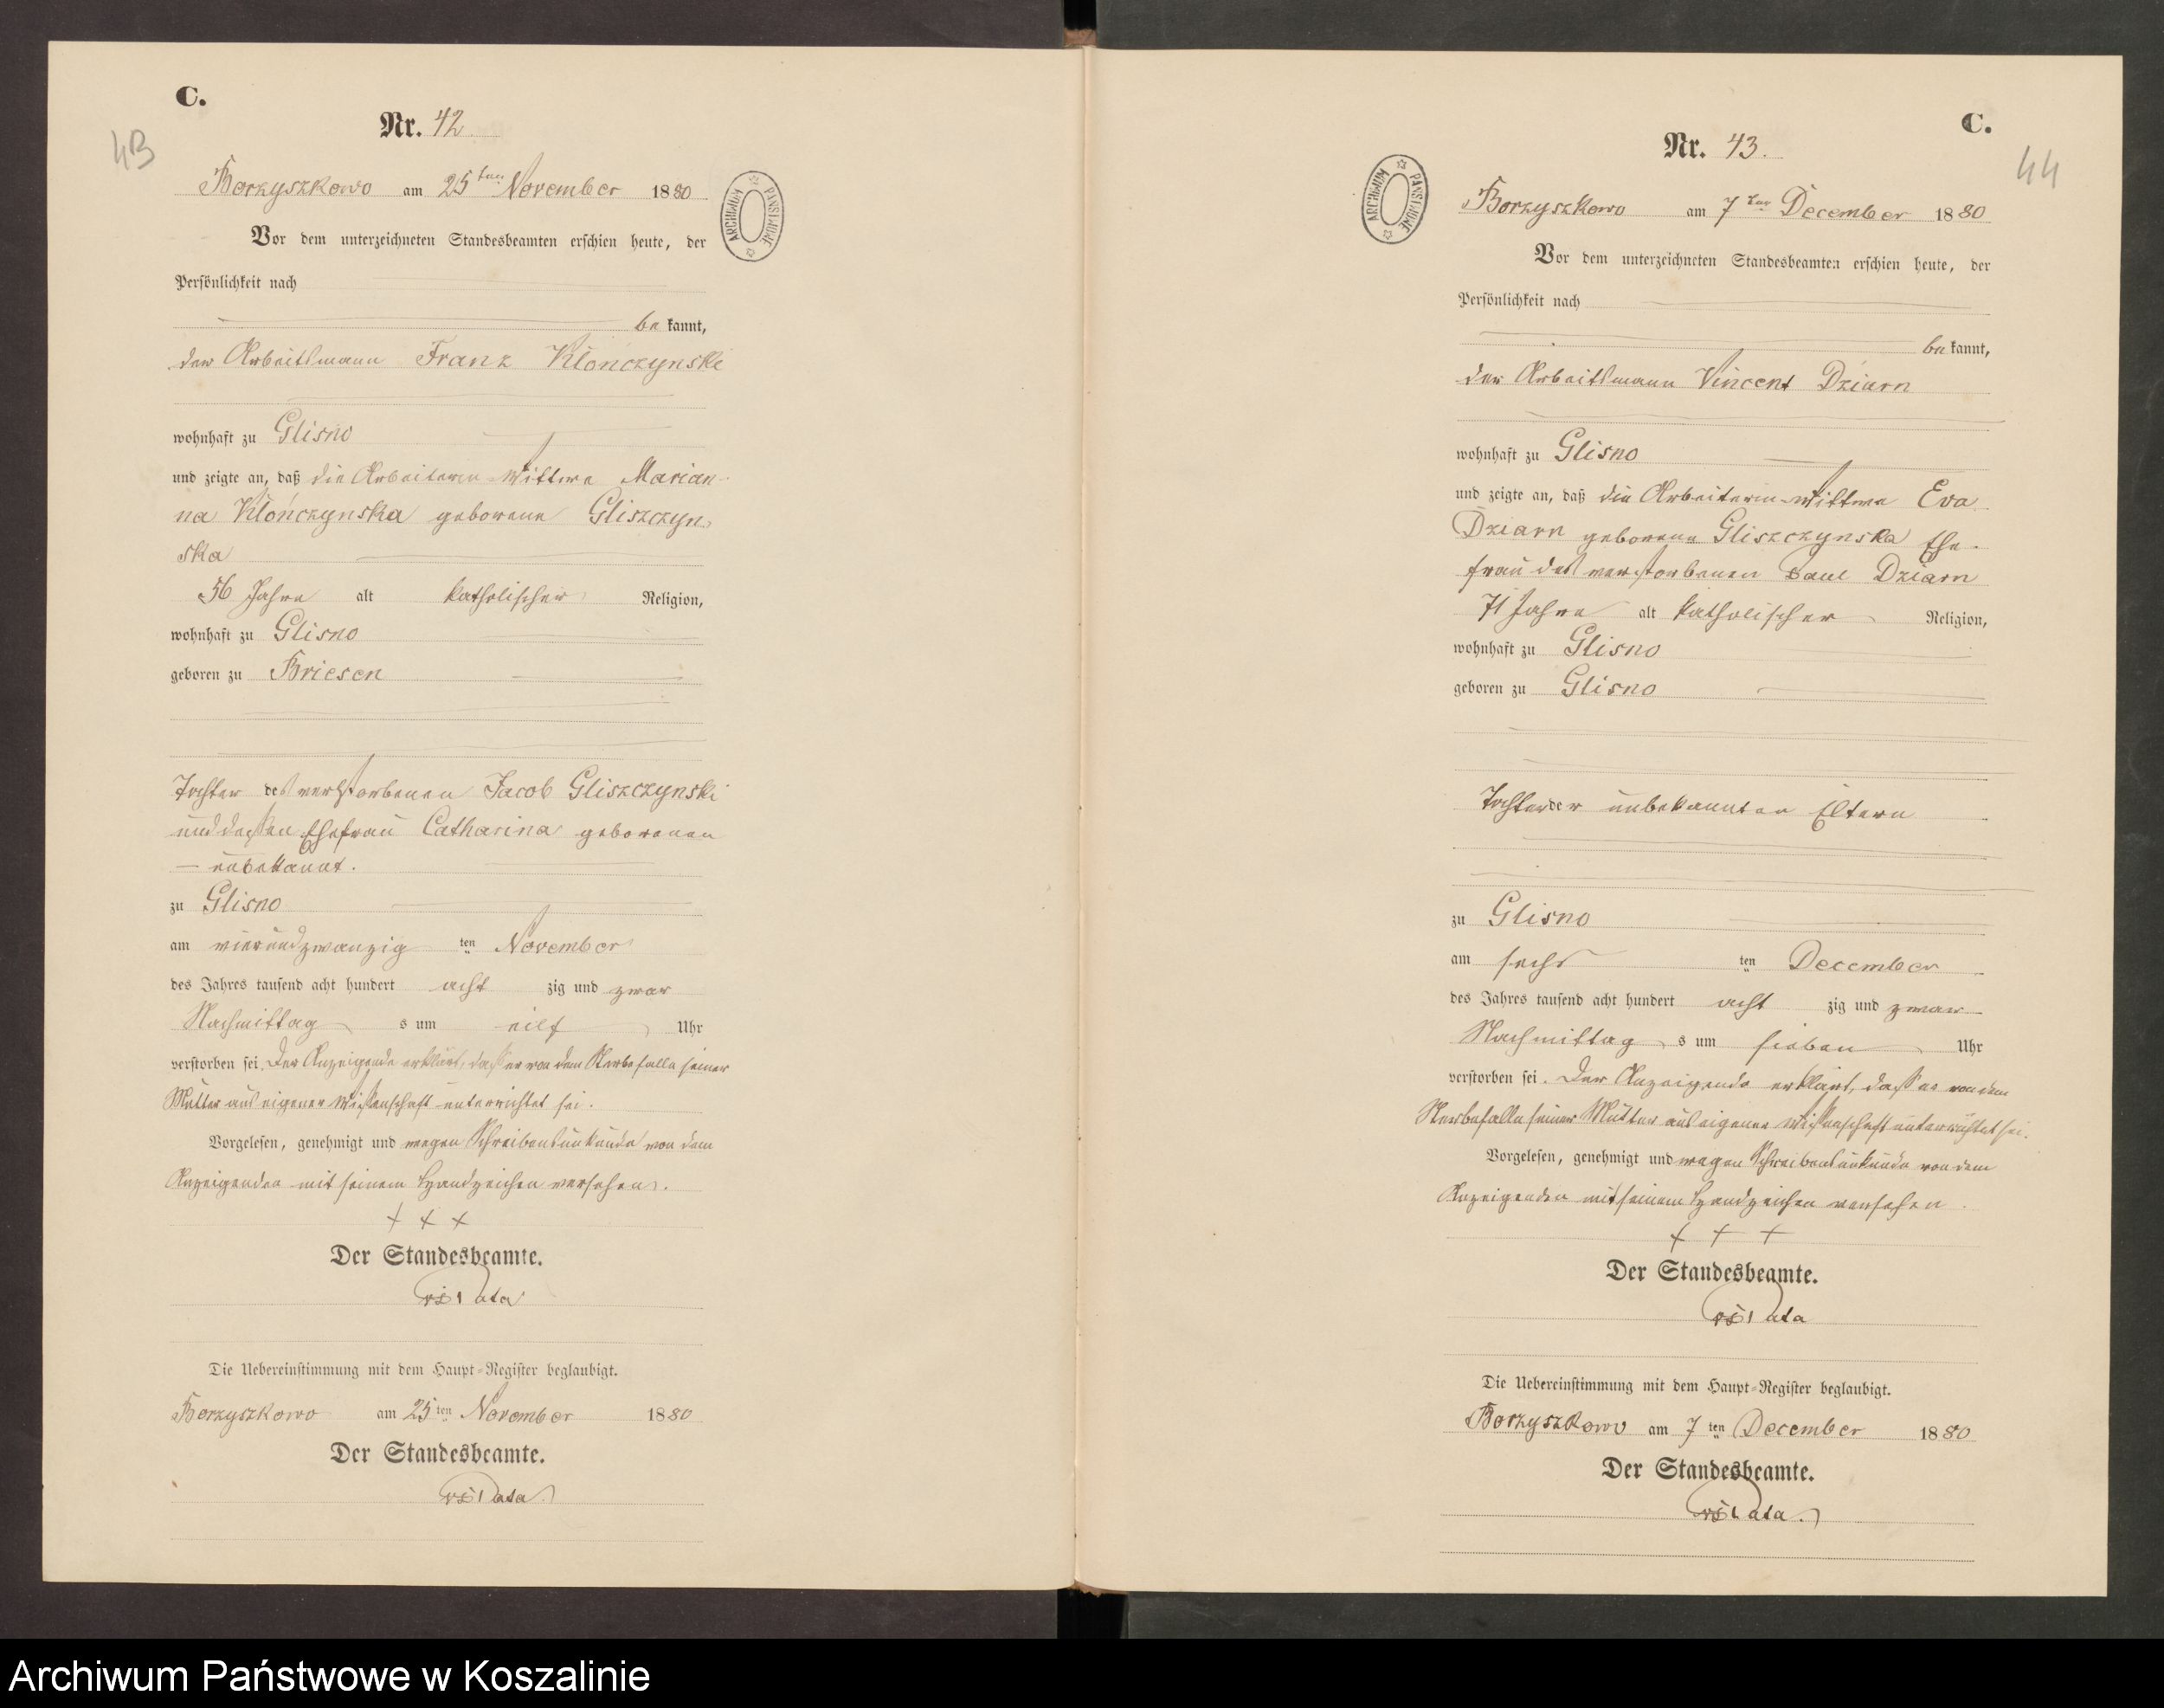 C.
43
Nr. 42.
Borzyszkowo am 25ten November 1880
Vor dem unterzeichneten Standesbeamten erschien heute, der
Persönlichkeit nach
be kannt,
der Arbeitsmann Franz Klończynski
wohnhaft zu Glisno
und zeigte an, daß die Arbeiterin-Wittwe Marian-
na Klończynska geborene Gliszczyn-
ska
56 Jahre alt katholischer Religion,
wohnhaft zu Glisno
geboren zu Briesen
Tochter des verstorbenen Jacob Gliszczynski
und dessen Ehefrau Catharina geborenen
— unbekannt.
zu Glisno
am vierundzwanzig ten November
des Jahres tausend acht hundert acht zig und zwar
Nachmittag s um eilf Uhr
verstorben sei. Der Anzeigende erklärt, daß er von dem Sterbefalle seiner
Mutter aus eigener Wissenschaft unterrichtet sei.
Vorgelesen, genehmigt und wegen Schreibensunkunde von dem
Anzeigenden mit seinem Handzeichen versehen.
+ + +
Der Standesbeamte.
Die Uebereinstimmung mit dem Haupt-Register beglaubigt.
Borzyszkowo am 25ten November 1880
Der Standesbeamte.
C.
44
Nr. 43.
ARCHIWUM PAŃSTWOWE
Borzyszkowo am 7ten December 1880
Vor dem unterzeichneten Standesbeamten erschien heute, der
Persönlichkeit nach
be kannt,
der Arbeitsmann Vincent Dziarn
wohnhaft zu Glisno
und zeigte an, daß die Arbeiterin-Wittwe Eva
Dziarn geborene Gliszczynska Ehe-
frau des verstorbenen Paul Dziarn
71 Jahre alt katholischer Religion,
wohnhaft zu Glisno
geboren zu Glisno
Tochter der unbekannten Eltern
zu Glisno
am sechs ten December
des Jahres tausend acht hundert acht zig und zwar
Nachmittag s um sieben Uhr
verstorben sei. Der Anzeigende erklärt, daß er von dem
Sterbefalle seiner Mutter aus eigener Wissenschaft unterrichtet sei.
Vorgelesen, genehmigt und wegen Schreibensunkunde von dem
Anzeigenden mit seinem Handzeichen versehen.
+ + +
Der Standesbeamte.
Die Uebereinstimmung mit dem Haupt-Register beglaubigt.
Borzyszkowo am 7ten December 1880
Der Standesbeamte.
Archiwum Państwowe w Koszalinie